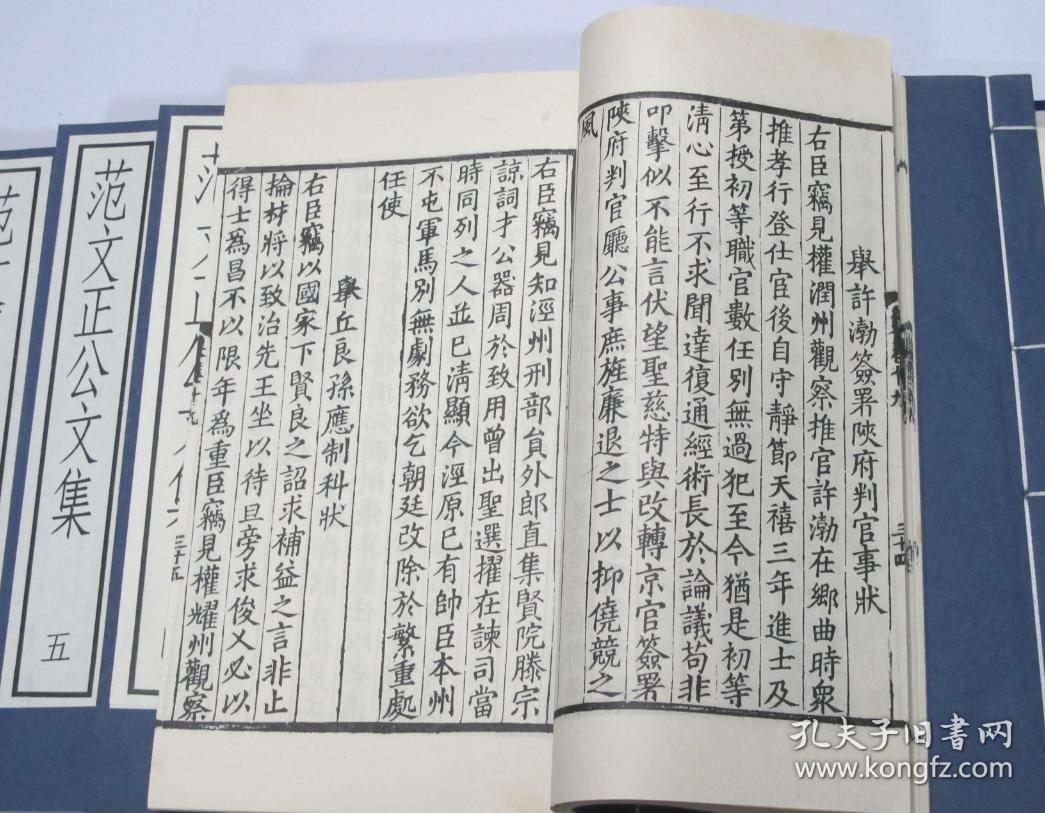 舉許渤簽署陝府判官事狀
右臣竊見權潤州觀察推官許渤在鄉曲時衆
推孝行登仕官後自守靜節天禧三年進士及
第授初等職官數任別無過犯至今猶是初等
清心至行不求聞達復通經術長於論議苟非
叩擊似不能言伏望聖慈特與改轉京官簽署
陝府判官廳公事庶旌廉退之士以抑僥競之
風
右臣竊見知涇州刑部員外郎直集賢院滕宗
諒詞才公器周於致用曾出聖選擢在諫司當
時同列之人並已清顯今涇原已有帥臣本州
不屯軍馬別無劇務欲乞朝廷改除於繁重處
任使
舉丘良孫應制科狀
右臣竊以國家下賢良之詔求補益之言非止
掄材將以致治先王坐以待旦旁求俊乂必以
得士爲昌不以限年爲重臣竊見權耀州觀察
三十四
三十五
范文正公文集
五
孔夫子旧書网
www.kongfz.com